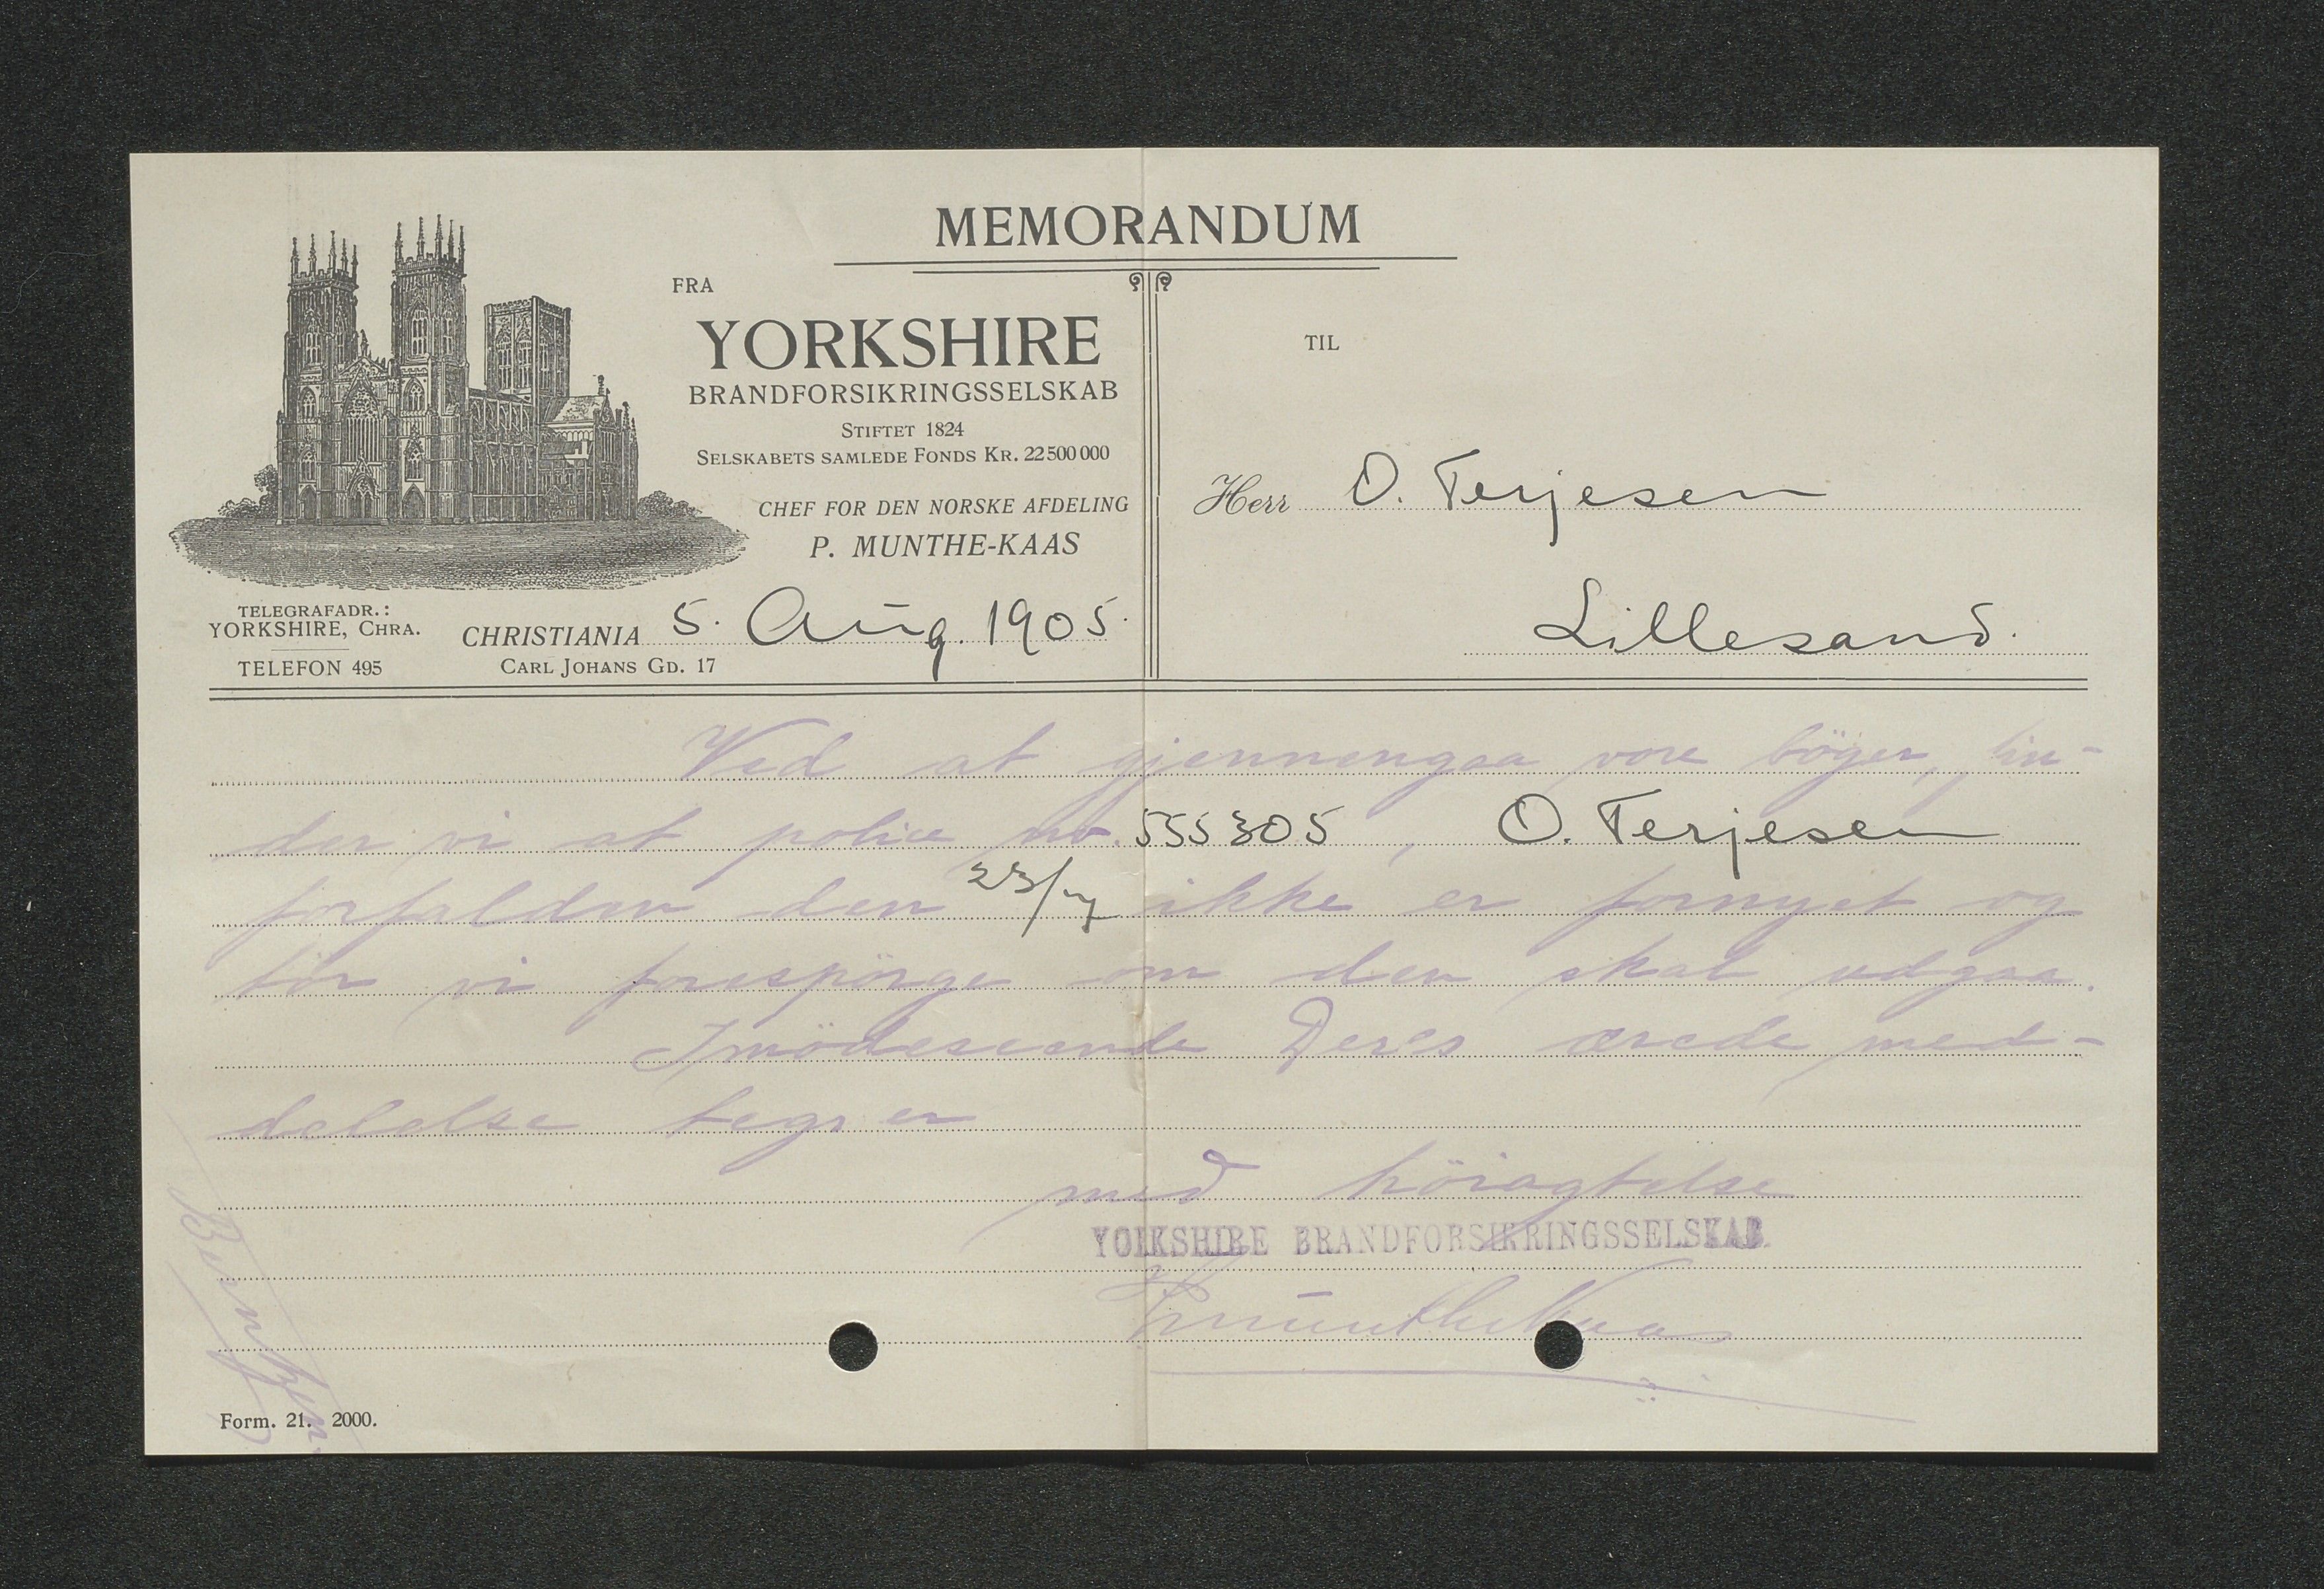 MEMORANDUM
FRA
YORKSHIRE
BRANDFORSIKRINGSSELSKAB
STIFTET 1824
SELSKABETS SAMLEDE FONDS KR. 22 500 000
CHEF FOR DEN NORSKE AFDELING
P. MUNTHE-KAAS
TELEGRAFADR.:
YORKSHIRE, CHRA.
TELEFON 495
CHRISTIANIA 5. Aug. 1905.
CARL JOHANS GD. 17
TIL
Herr O. Terjesen
Lillesand.
Ved at gjennemgaa vore böger, fin-
der vi at police no. 555305, O. Terjesen
forfalden den 23/7 ikke er fornyet og
tör vi forespörge om den skal udgaa.
Imödeseende Deres ærede med-
delelse tegner
med höiagtelse
YORKSHIRE BRANDFORSIKRINGSSELSKAB.
PMuntheKaas
Form. 21. 2000.